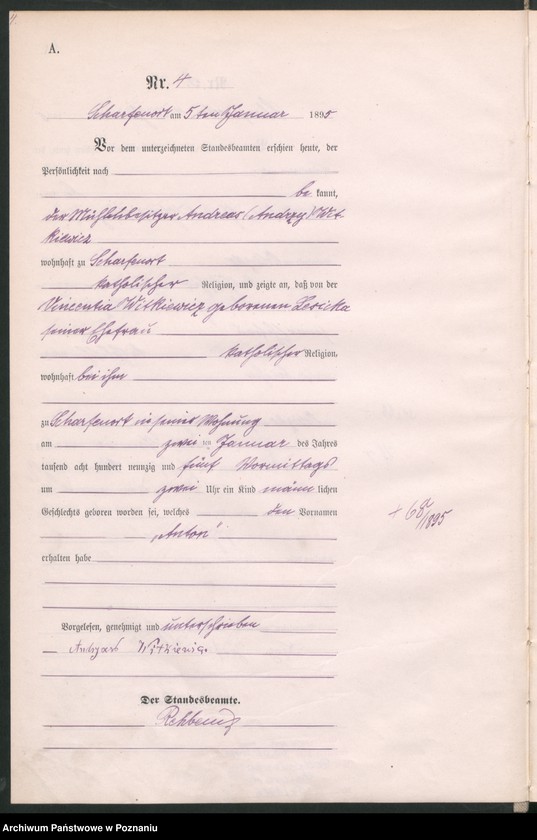 11.
A.
Nr. 4
Scharfenort am 5ten Januar 1895
Vor dem unterzeichneten Standesbeamten erschien heute, der
Persönlichkeit nach
be kannt,
der Mühlenbesitzer Andreas (Andrzy) Wit
kiewicz
wohnhaft zu Scharfenort
katholischer Religion, und zeigte an, daß von der
Vincentia Witkiewicz geborenen
seiner Ehefrau
katholischer Religion,
wohnhaft bei ihm
zu Scharfenort in seiner Wohnung
am zwei ten Januar des Jahres
tausend acht hundert neunzig und fünf Vormittags
um zwei Uhr ein Kind männ lichen
Geschlechts geboren worden sei, welches den Vornamen
„Anton“
erhalten habe
Vorgelesen, genehmigt und unterschrieben
Witkiewic.
Der Standesbeamte.
Archiwum Państwowe w Poznaniu